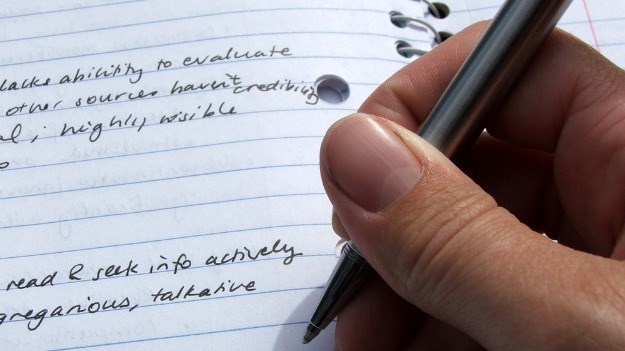 lacks abilility to evaluate
other sources haven't credibility
al ; highly visible
read & seek info actively
gregarious, talkative